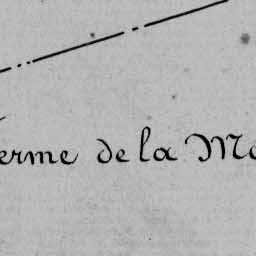 erme de la Mo